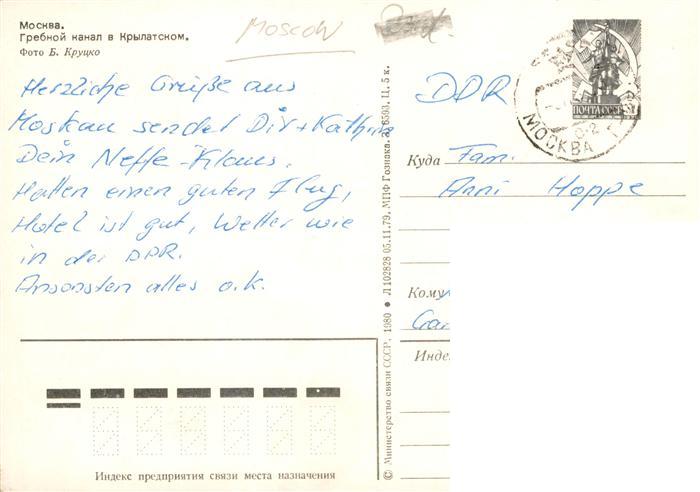 Москва.
Гребной канал в Крылатском.
Фото Б. Круцко
Moscow
Herzliche Grüße aus
Moskau sendet Dir + Kathrin
Dein Neffe - Klaus.
Hatten einen guten Flug,
Hotel ist gut, Wetter wie
in der DDR.
Ansonsten alles o.k.
Индекс предприятия связи места назначения
© Министерство связи СССР, 1980 ● Л 102828 05.11.79. МПФ Гознака. З. 6503. Ц. 5 к.
DDR
ПОЧТА СССР
МОСКВА
Куда Fam.
Anni Hoppe
Кому
Инде